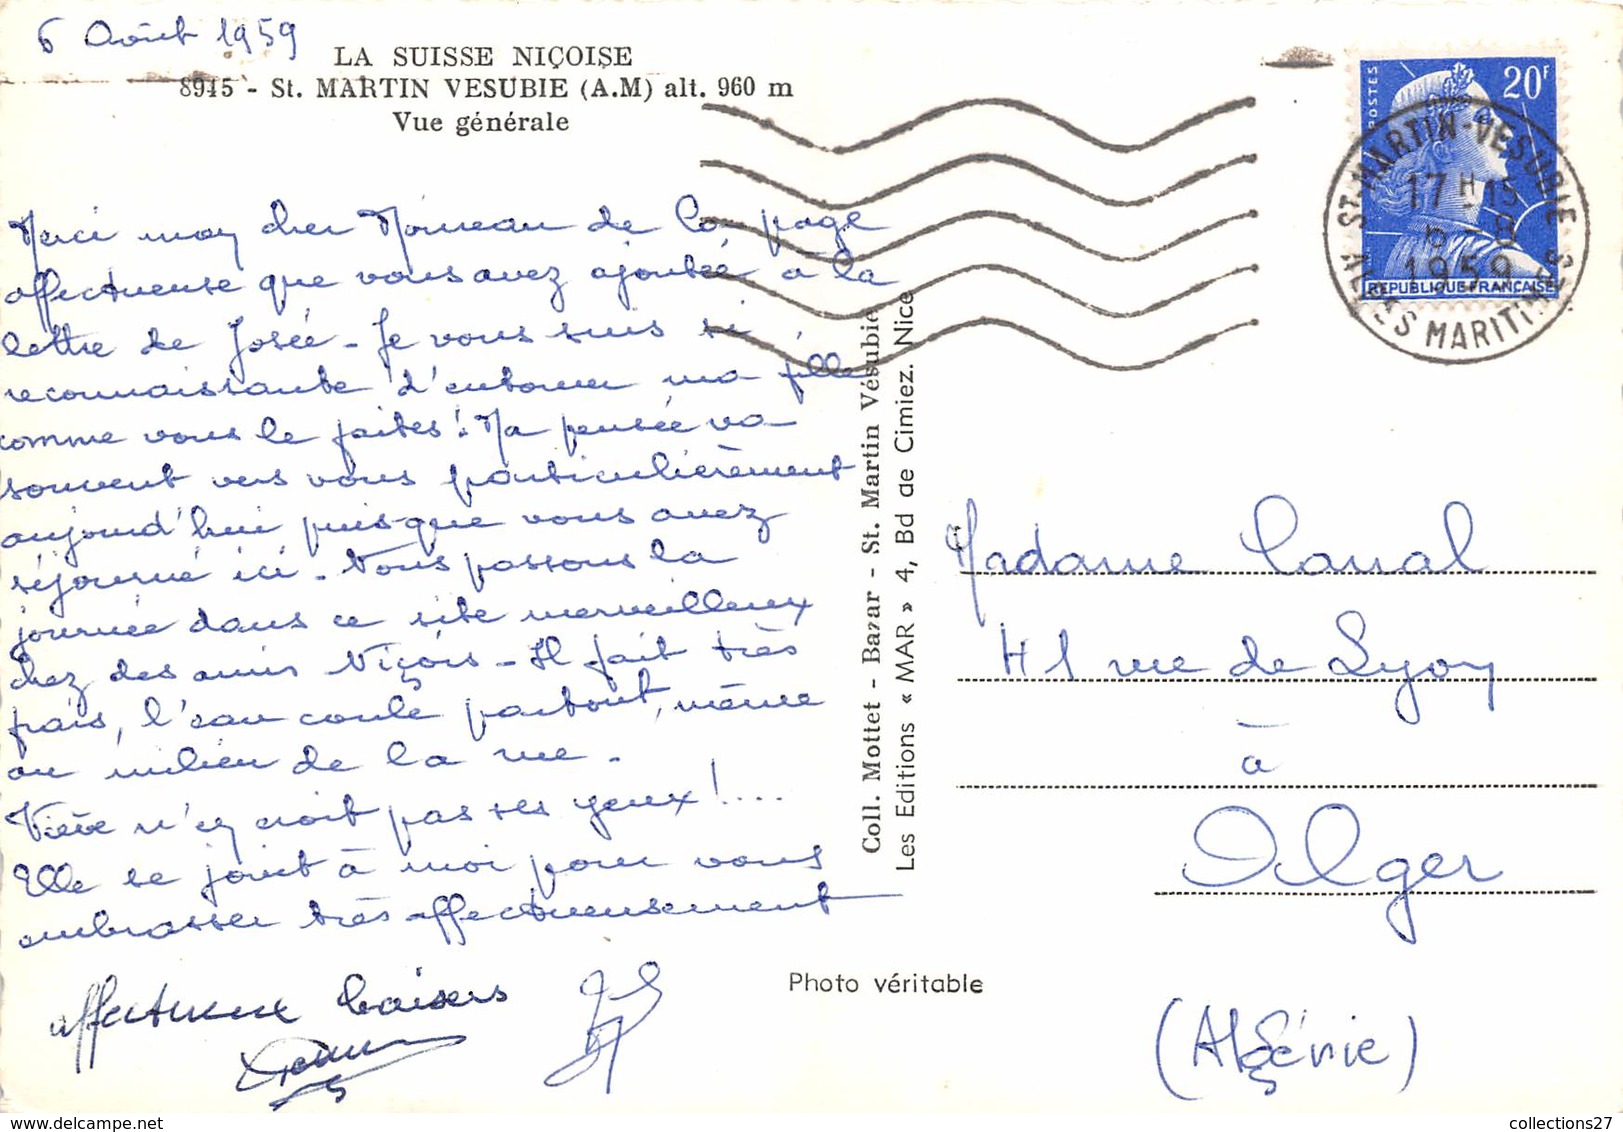 6 Août 1959
LA SUISSE NIÇOISE
8915 - St. MARTIN VESUBIE (A.M) alt. 960 m
Vue générale
Merci mon cher Moineau de la page
affectueuse que vous avez ajoutée à la
lettre de Josée - Je vous suis si
reconnaissante d'entourer ma fille
comme vous le faites! Ma pensée va
souvent vers vous particulièrement
aujourd'hui puisque vous avez
séjourné ici - Nous passons la
journée dans ce site merveilleux
chez des amis Niçois - Il fait très
frais, l'eau coule partout, même
au milieu de la rue -
n'en croit pas ses yeux!....
Elle se joint à moi pour vous
embrasser très affectueusement
affectueux baisers
Coll. Mottet - Bazar - St. Martin Vésubie
Les Editions « MAR » 4, Bd de Cimiez. Nice
Photo véritable
POSTES
20F
REPUBLIQUE FRANÇAISE
ST MARTIN-VESUBIE
17H15
6-8
1959
ALPES MARITIMES
Madame Canal
41 rue de Lyon
à
Alger
(Algérie)
collections27